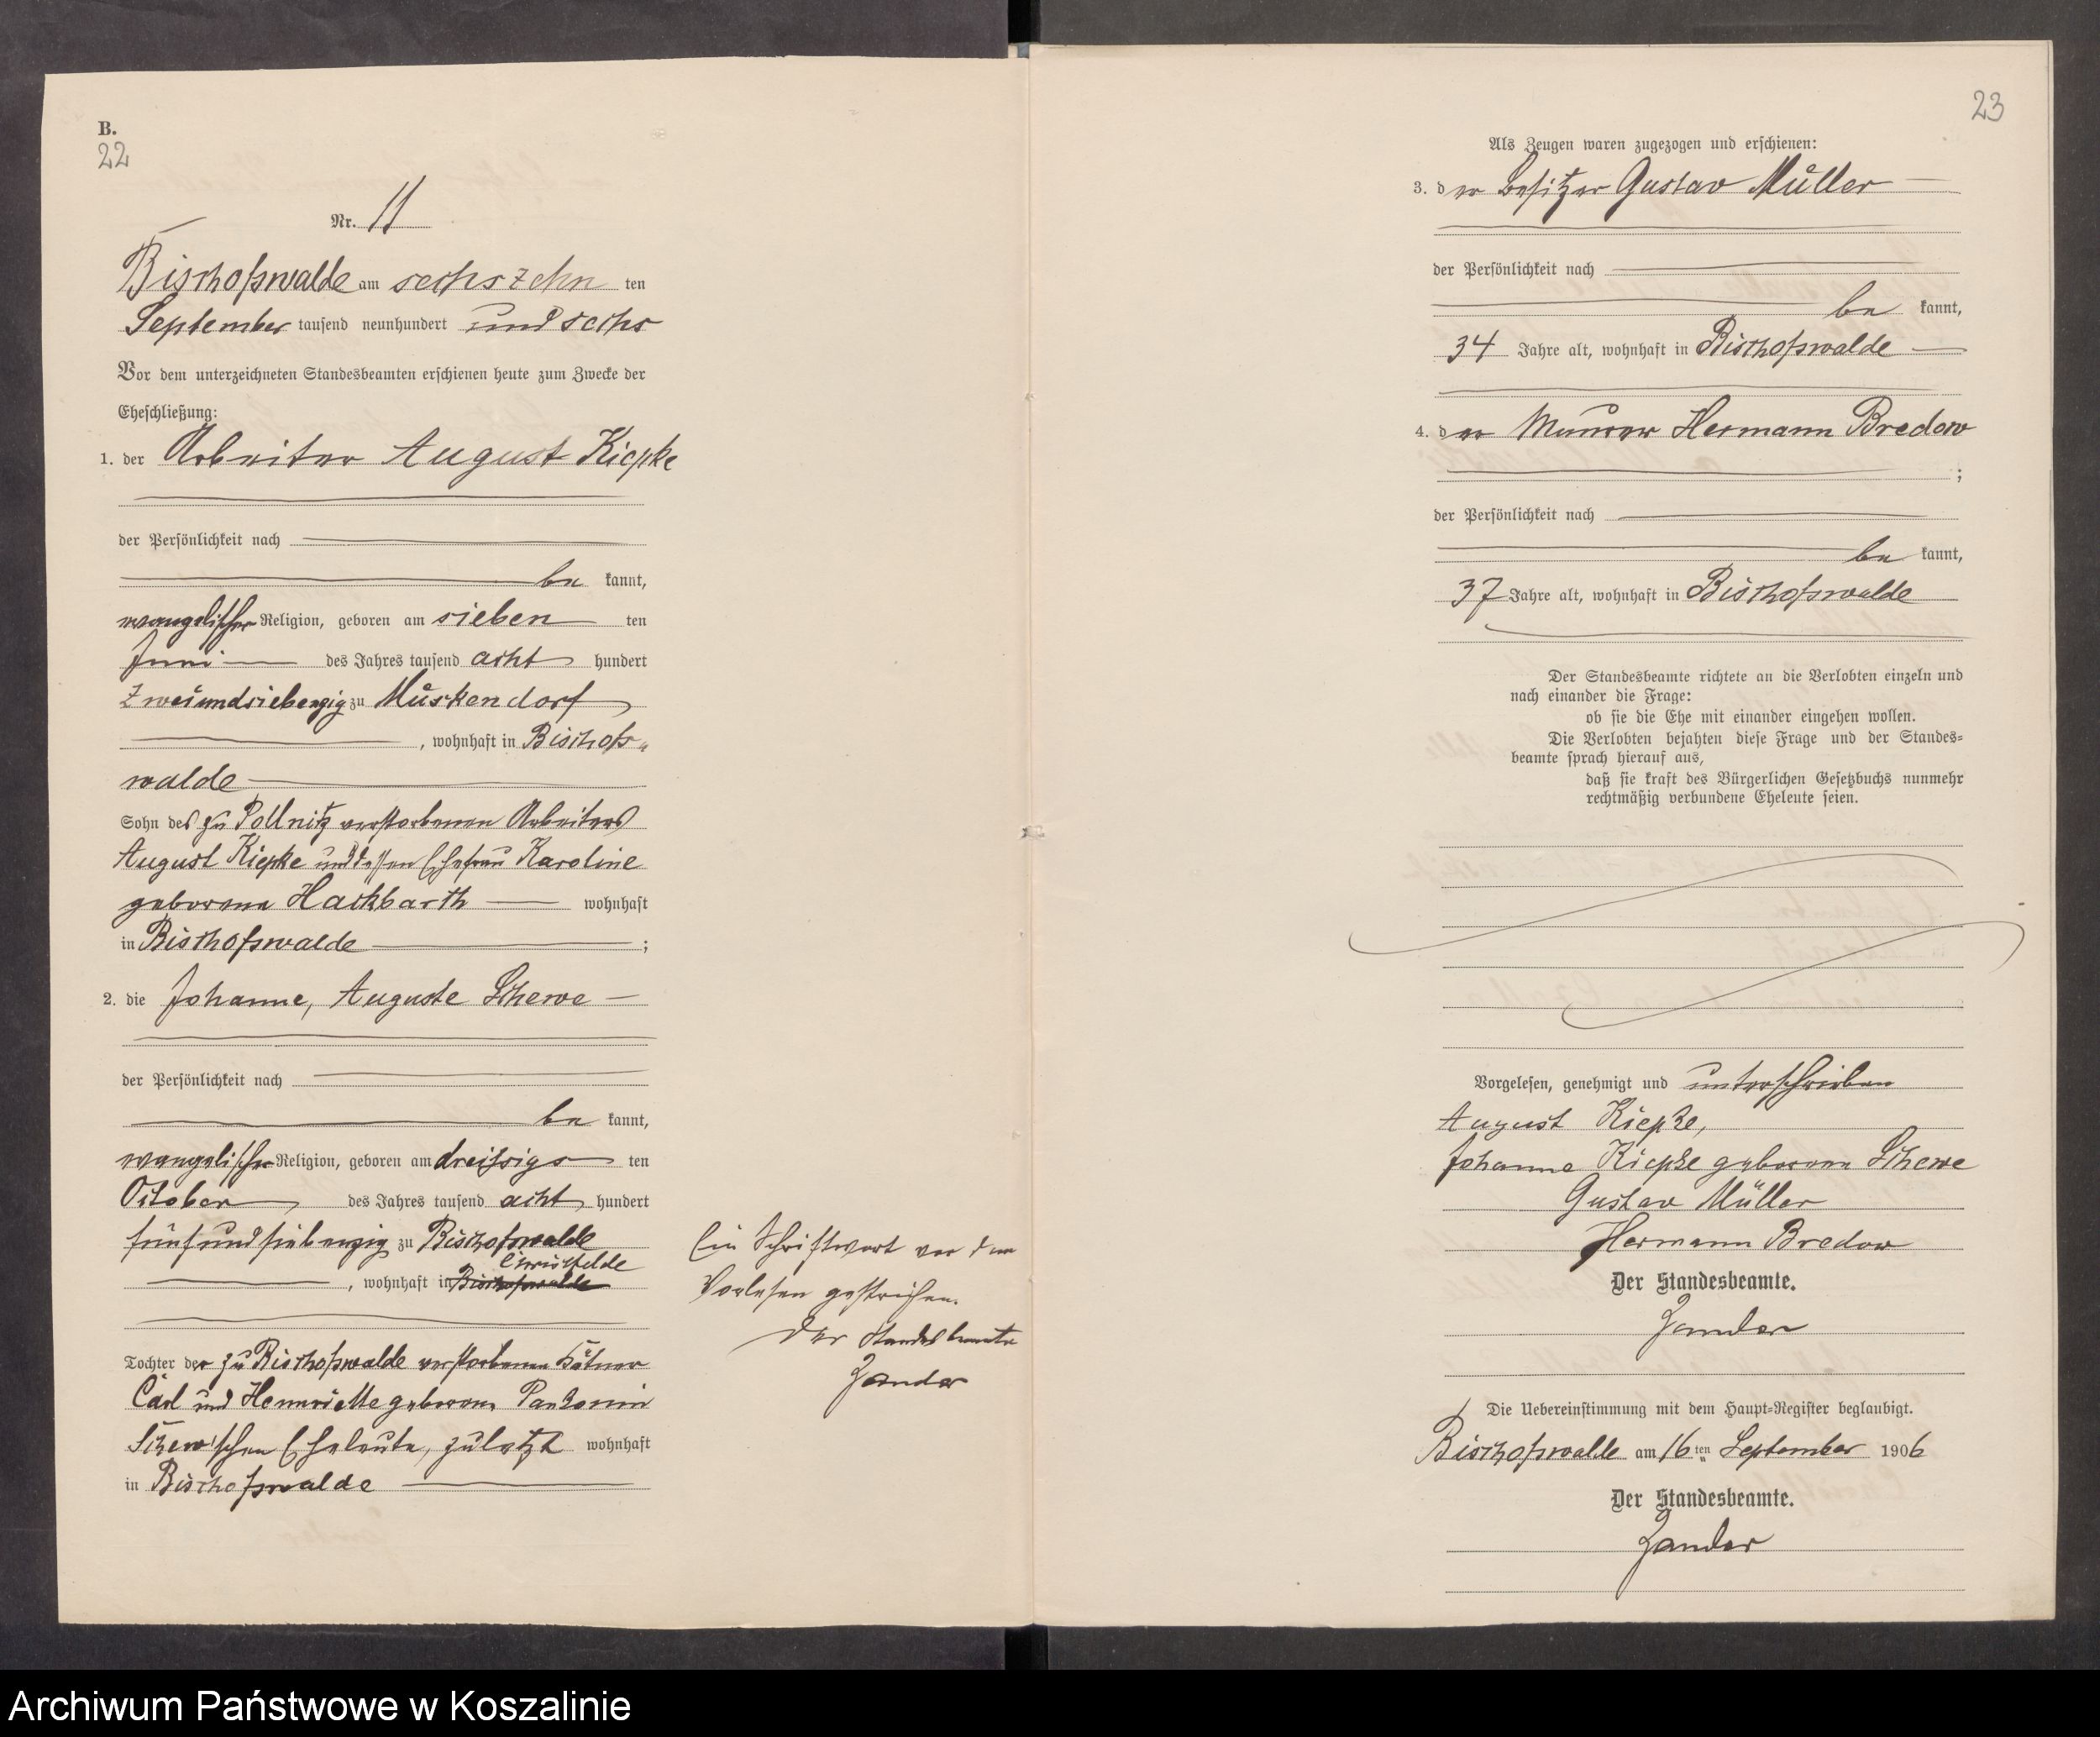 B.
22
Nr. 11
Bischofswalde am sechszehn ten
September tausend neunhundert und sechs
Vor dem unterzeichneten Standesbeamten erschienen heute zum Zwecke der
Eheschließung:
1. der Arbeiter August Kiepke
der Persönlichkeit nach
be kannt,
evangelischer Religion, geboren am sieben ten
Juni des Jahres tausend acht hundert
zweiundsiebenzig zu Müskendorf
, wohnhaft in Bischofs„
walde
Sohn des zu Pollnitz verstorbenen Arbeiters
August Kiepke und dessen Ehefrau Karoline
geborene Hackbarth wohnhaft
in Bischofswalde ;
2. die Johanne, Auguste Schewe
der Persönlichkeit nach
be kannt,
evangelischer Religion, geboren am dreißigs ten
October des Jahres tausend acht hundert
fünfundsiebenzig zu Bischofswalde
, wohnhaft in Bischofswalde
Tochter der zu Bischofswalde verstorbenen Kätner
Carl und Hennriette geborene
Schew'schen Eheleute, zuletzt wohnhaft
in Bischofswalde
Ein Schriftwort vor dem
Vorlesen gestrichen.
Der Standesbeamte
Zander
23
Als Zeugen waren zugezogen und erschienen:
3. der Besitzer Gustav Müller
der Persönlichkeit nach
be kannt,
34 Jahre alt, wohnhaft in Bischofswalde
4. der Maurer Hermann Bredow
;
der Persönlichkeit nach
be kannt,
37 Jahre alt, wohnhaft in Bischofswalde
Der Standesbeamte richtete an die Verlobten einzeln und
nach einander die Frage:
ob sie die Ehe mit einander eingehen wollen.
Die Verlobten bejahten diese Frage und der Standes=
beamte sprach hierauf aus,
daß sie kraft des Bürgerlichen Gesetzbuchs nunmehr
rechtmäßig verbundene Eheleute seien.
Vorgelesen, genehmigt und unterschrieben
August Kiepke,
Johanne Kiepke geborene Schewe
Gustav Müller
Hermann Bredow
Der Standesbeamte.
Zander
Die Uebereinstimmung mit dem Haupt=Register beglaubigt.
Bischofswalde am 16 ten September 1906
Der Standesbeamte.
Zander
Archiwum Państwowe w Koszalinie